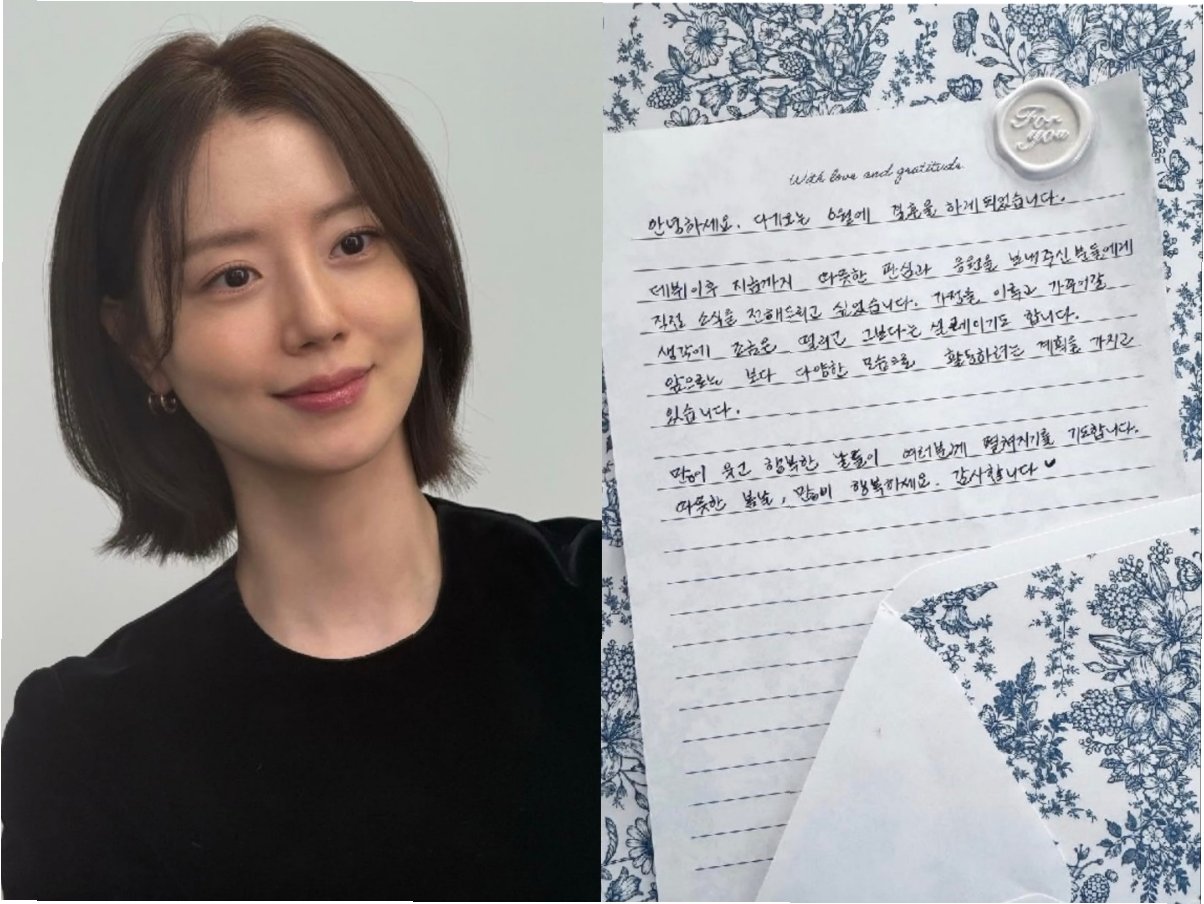 For
you
With love and gratitude
안녕하세요. 다가오는 6월에 결혼을 하게 되었습니다.
데뷔이후 지금까지 따뜻한 관심과 응원을 보내주신 분들에게
직접 소식을 전해드리고 싶었습니다. 가정을 이루고 가꾸어갈
생각에 조금은 떨리고 그보다는 설레이기도 합니다.
앞으로는 보다 다양한 모습으로 활동하려는 계획을 가지고
있습니다.
많이 웃고 행복한 날들이 여러분께 펼쳐지기를 기도합니다.
따뜻한 봄날, 많이 행복하세요. 감사합니다 ♥